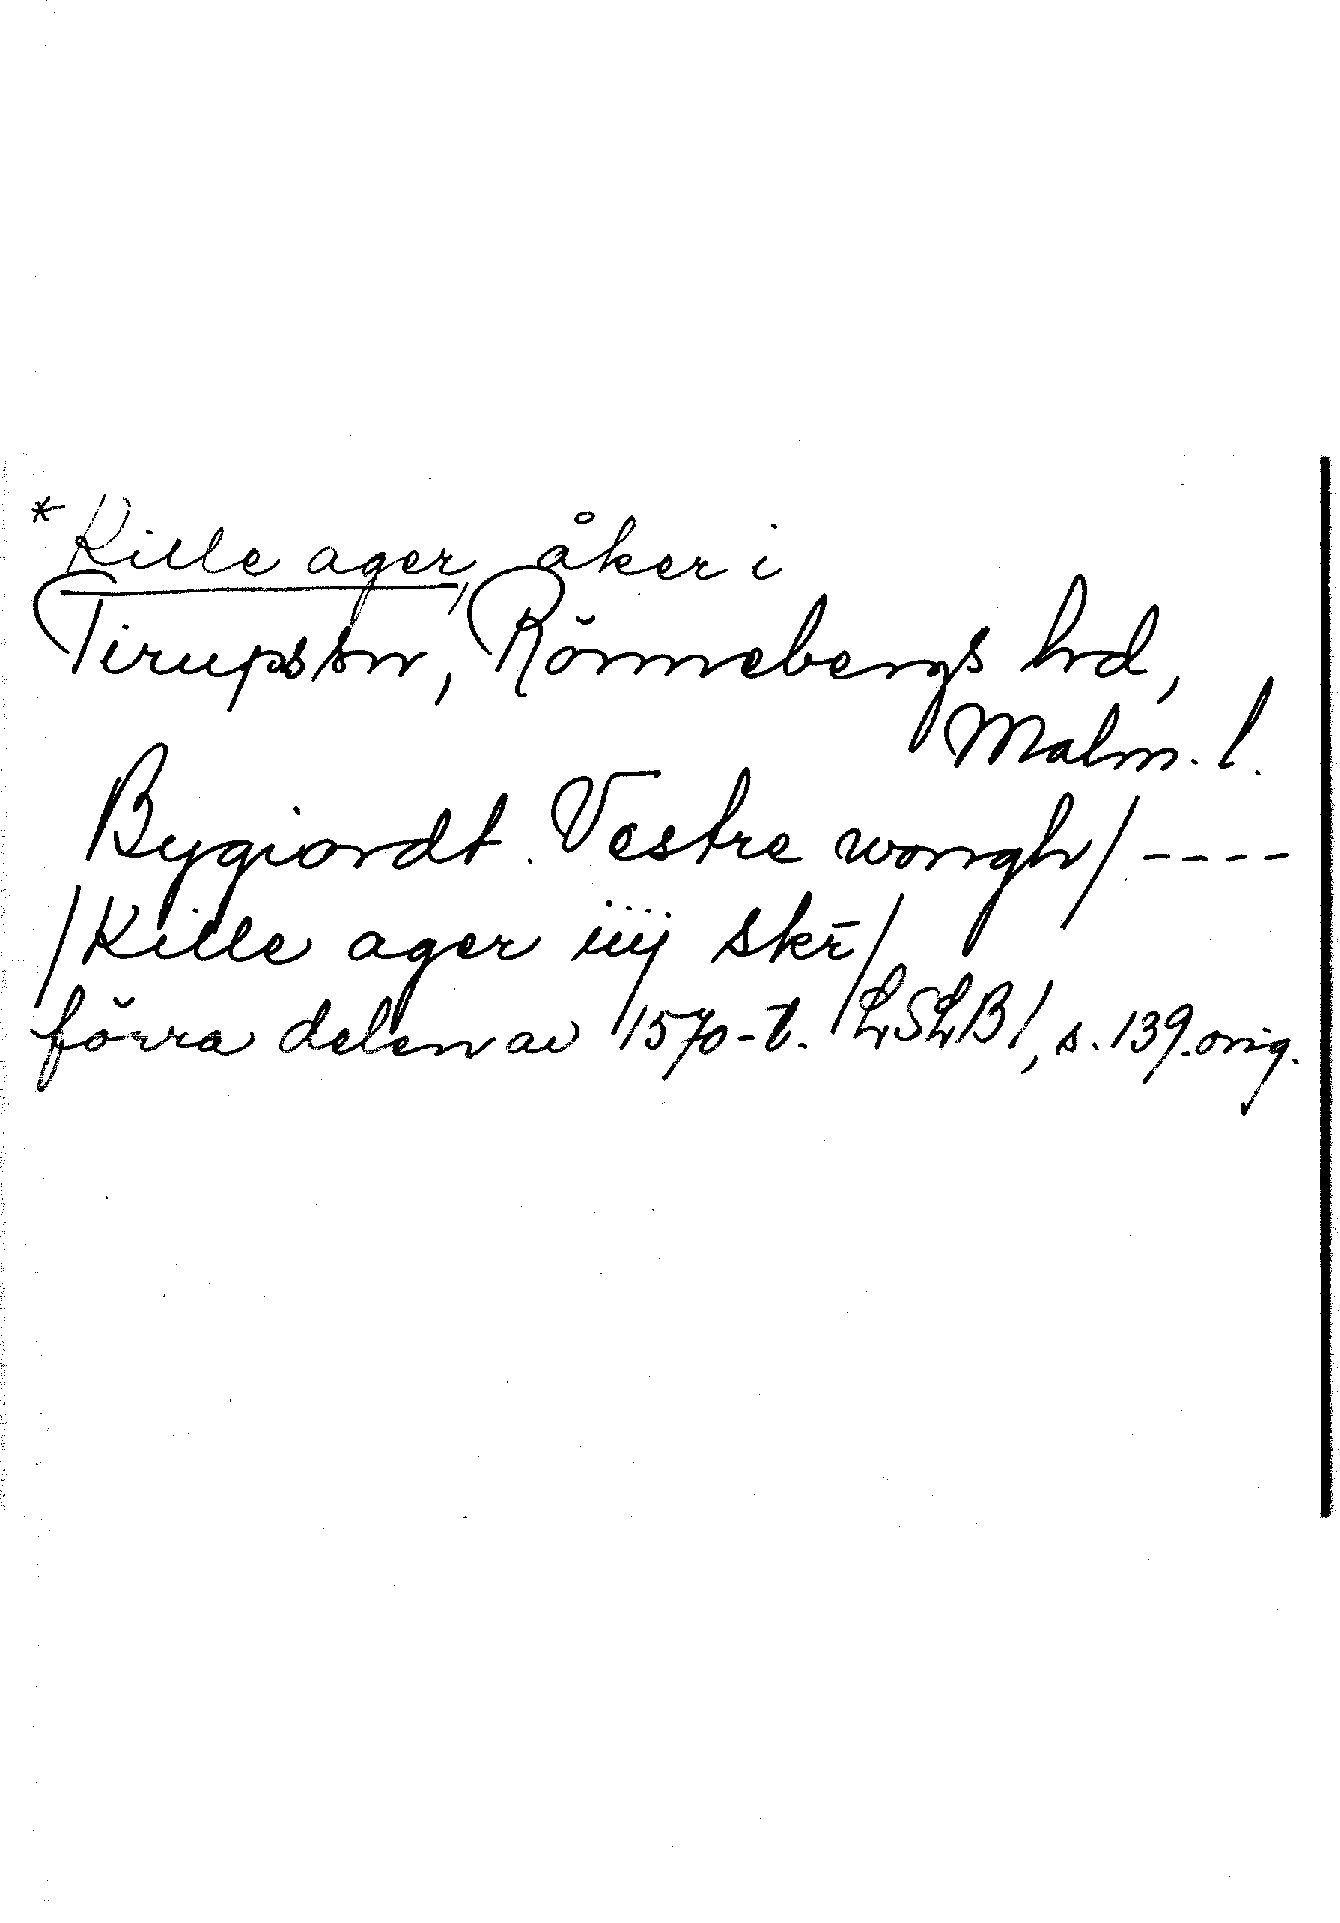 *Kille ager, åker i
Tirups sn, Rönnebergs hd,
Malm. l.
Bygiordt. Vestre wongh/----
/Kille ager iiij skr̄/
förra delen av 1570-t. LSLB 1, s. 139. orig.